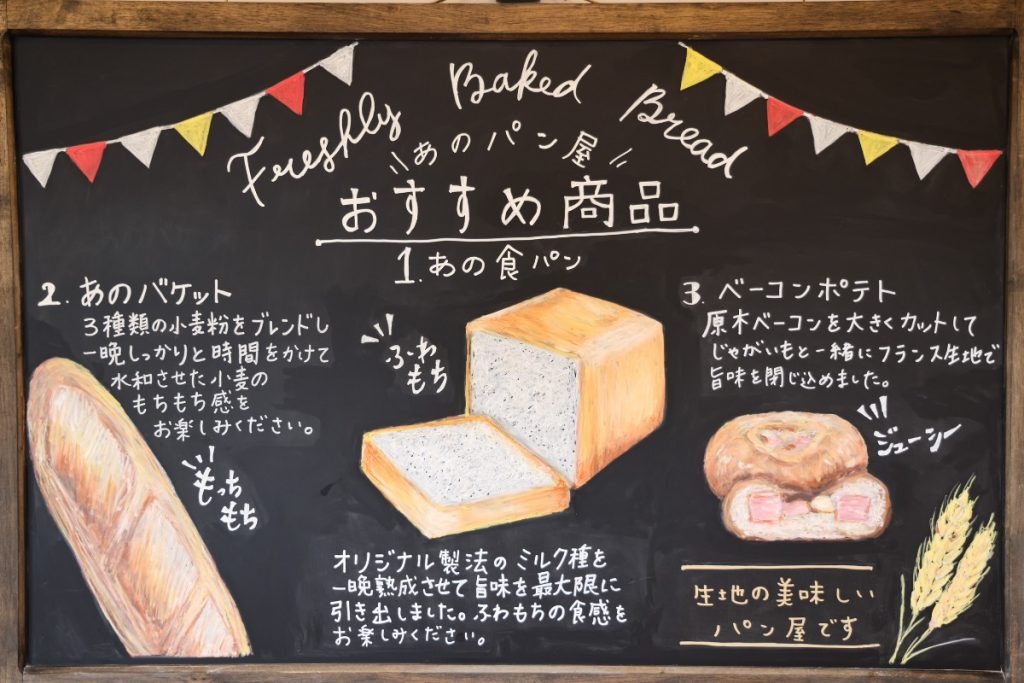 Freshly Baked Bread
あのパン屋
おすすめ商品
1. あの食パン
ふわ
もち
オリジナル製法のミルク種を
一晩熟成させて旨味を最大限に
引き出しました。ふわもちの食感を
お楽しみください。
2. あのバケット
3種類の小麦粉をブレンドし
一晩しっかりと時間をかけて
水和させた小麦の
もちもち感を
お楽しみください。
もっち
もち
3. ベーコンポテト
原木ベーコンを大きくカットして
じゃがいもと一緒にフランス生地で
旨味を閉じ込めました。
ジューシー
生地の美味しい
パン屋です